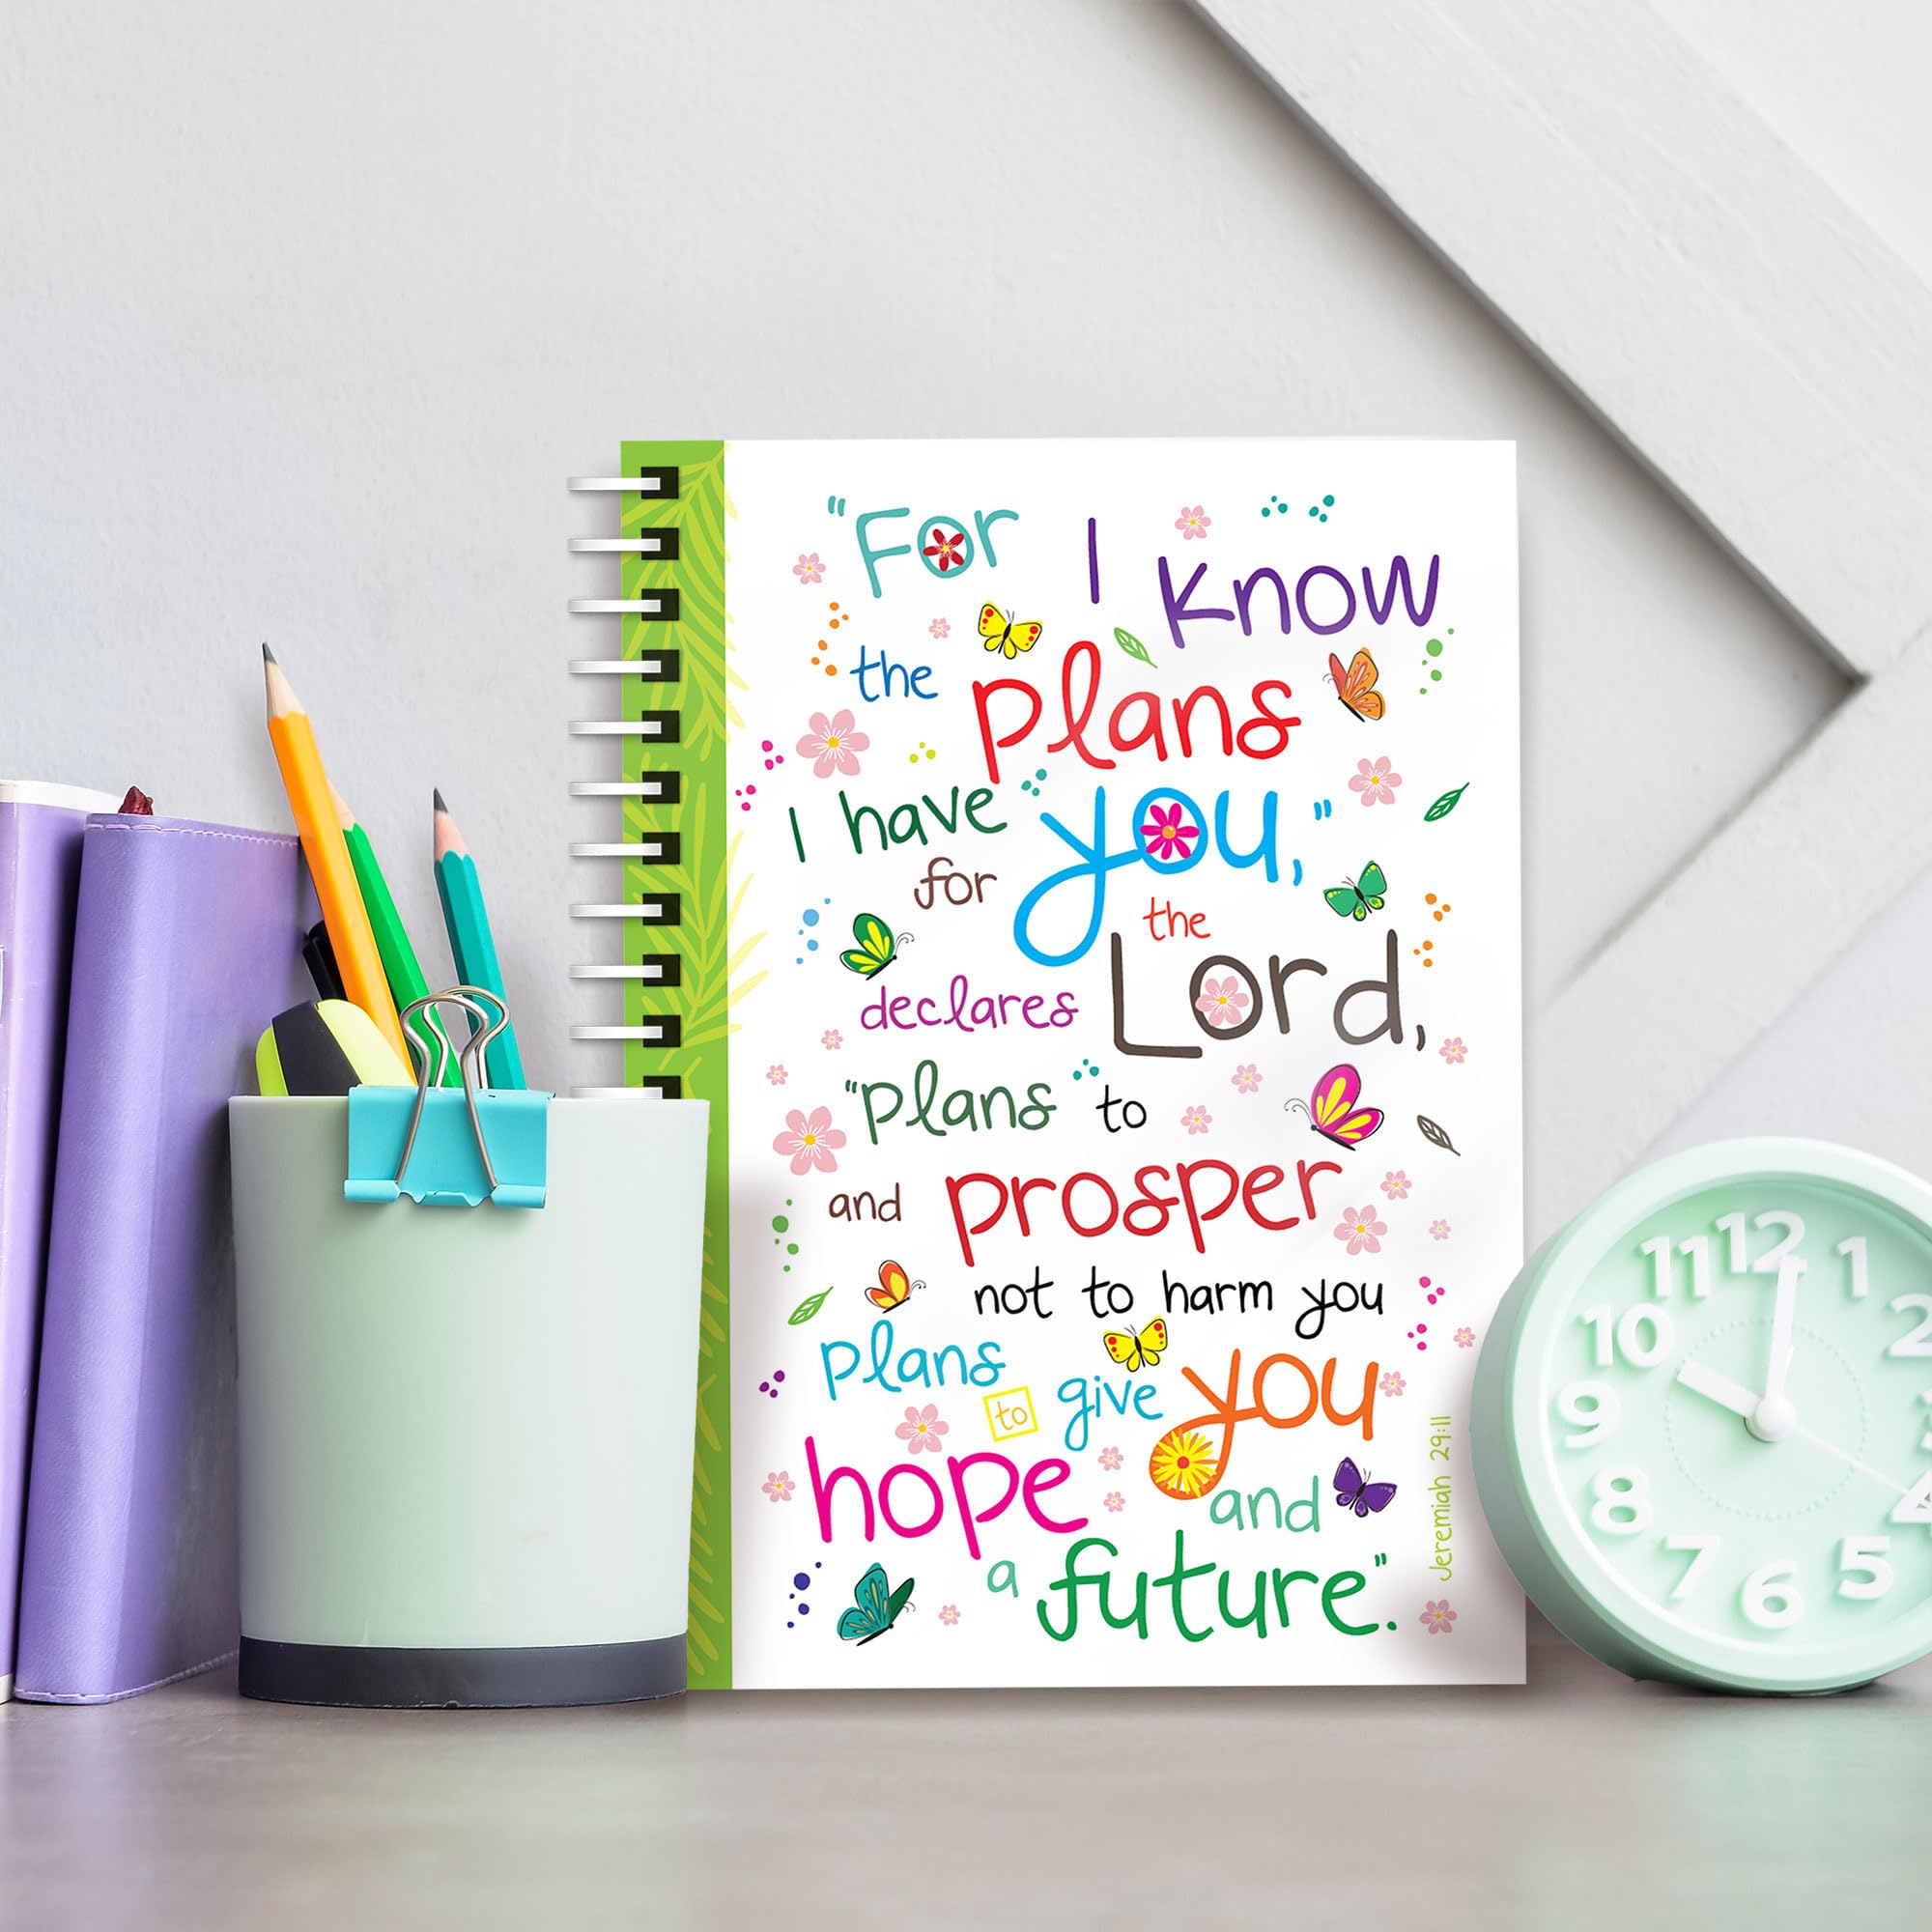 "For I know
the plans
I have
for you,"
declares the Lord,
"Plans to
and prosper
not to harm you
plans
to give you
hope and
a future".
Jeremiah 29:11
11 12 1
10 2
9
8 4
7 6 5